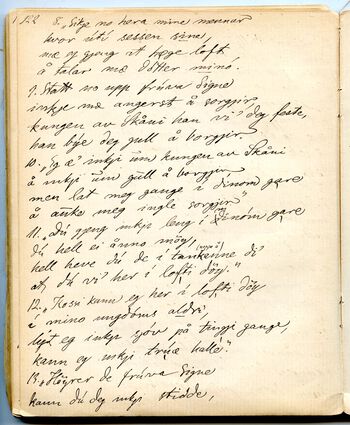 122
8. „Sitje no hera mine mennar
hvor úti sessen sine,
mæ eg gjeng at høge loft
å talar mæ dötter mino.
9. Statt no upp frúva Signe
inkje mæ angerst å sorgjir
kungen av Skåni han vi' deg feste,
han bye deg gull å borgjir.
10. „Eg æ' inkji um kungen av Skåni
å inkji um gull å borgjir,
men lat meg gange i dinom gare
å auke meg ingle sorgjir"
11. „Dú gjeng inkje leng i dinom gare
dú hell ei ånno möy,
hell heve dú de i tankenne di'
at dú vi' her i lofti döy."
12. „Kosn kann eg her i lofti döy
i mino ungdoms aldri,
lyt eg inkje sov på tingji gange,
kann eg inkji trúæ halle."
13. „Höyrer de frúva Signe
kann dú deg inkji stidde,